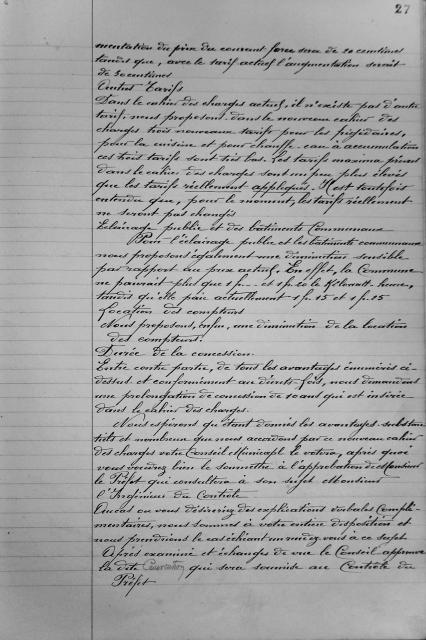 27
mentation du prix du courant force sera de 20 centimes
tandis que, avec le tarif actuel l'augmentation serait
de 50 centimes
Autres Tarifs
Dans le cahier des charges actuel, il n'existe pas d'autre
tarif. nous proposons dans le nouveau cahier des
charges trois nouveaux tarifs pour les frigidaires,
pour la cuisine et pour chauffe-eau à accumulation
ces trois tarifs sont très bas. Les tarifs maxima prévus
dans le cahier des charges sont un peu plus élevés
que les tarifs réellement appliqués. Il est toutefois
entendu que, pour le moment, les tarifs réellement
ne seront pas changés
Eclairage public et des bâtiments Communaux
Pour l'éclairage public et les bâtiments communaux
nous proposons également une diminution sensible
par rapport au prix actuel. En effet, la Commune
ne paierait plus que 1f.- et 1f.10 le Kilowatt-heure,
tandis qu'elle paie actuellement 1f.15 et 1f.25
Location des compteurs
Nous proposons, enfin, une diminution de la location
des compteurs.
Durée de la concession.
Entre contre partie, de tous les avantages énumérés ci-
dessus et conformément au décrets-lois, nous demandons
une prolongation de concession de 10 ans qui est insérée
dans le cahier des charges.
Nous espérons qu'étant donnés les avantages substan
tiels et nombreux que nous accordons par ce nouveau cahier
des charges votre Conseil Municipal le votera, après quoi
vous voudrez bien le soumettre à l'approbation de Monsieur
le Préfet qui consultera à son sujet Monsieur
l'Ingénieur du Contrôle
Aucas ou vous désireriez des explications verbales Complé-
mentaires, nous sommes à votre entière disposition et
nous prendrions le cas échéant un rendez vous à ce sujet
Après examiné et échanges de vue le Conseil approuve
la dite Convention qui sera soumise au Contrôle du
Préfet